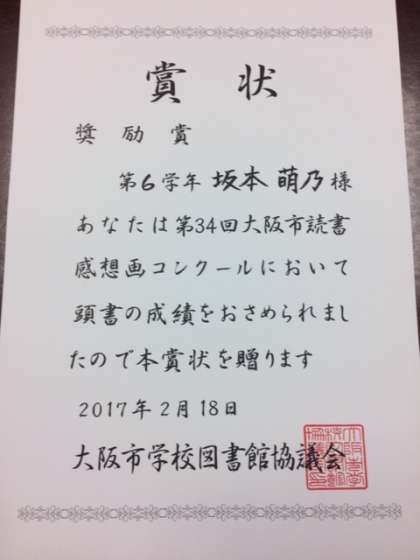 賞状
奨励賞
第6学年 坂本 萌乃 様
あなたは第34回大阪市読書
感想画コンクールにおいて
頭書の成績をおさめられまし
たので本賞状を贈ります
2017年2月18日
大阪市学校図書館協議会